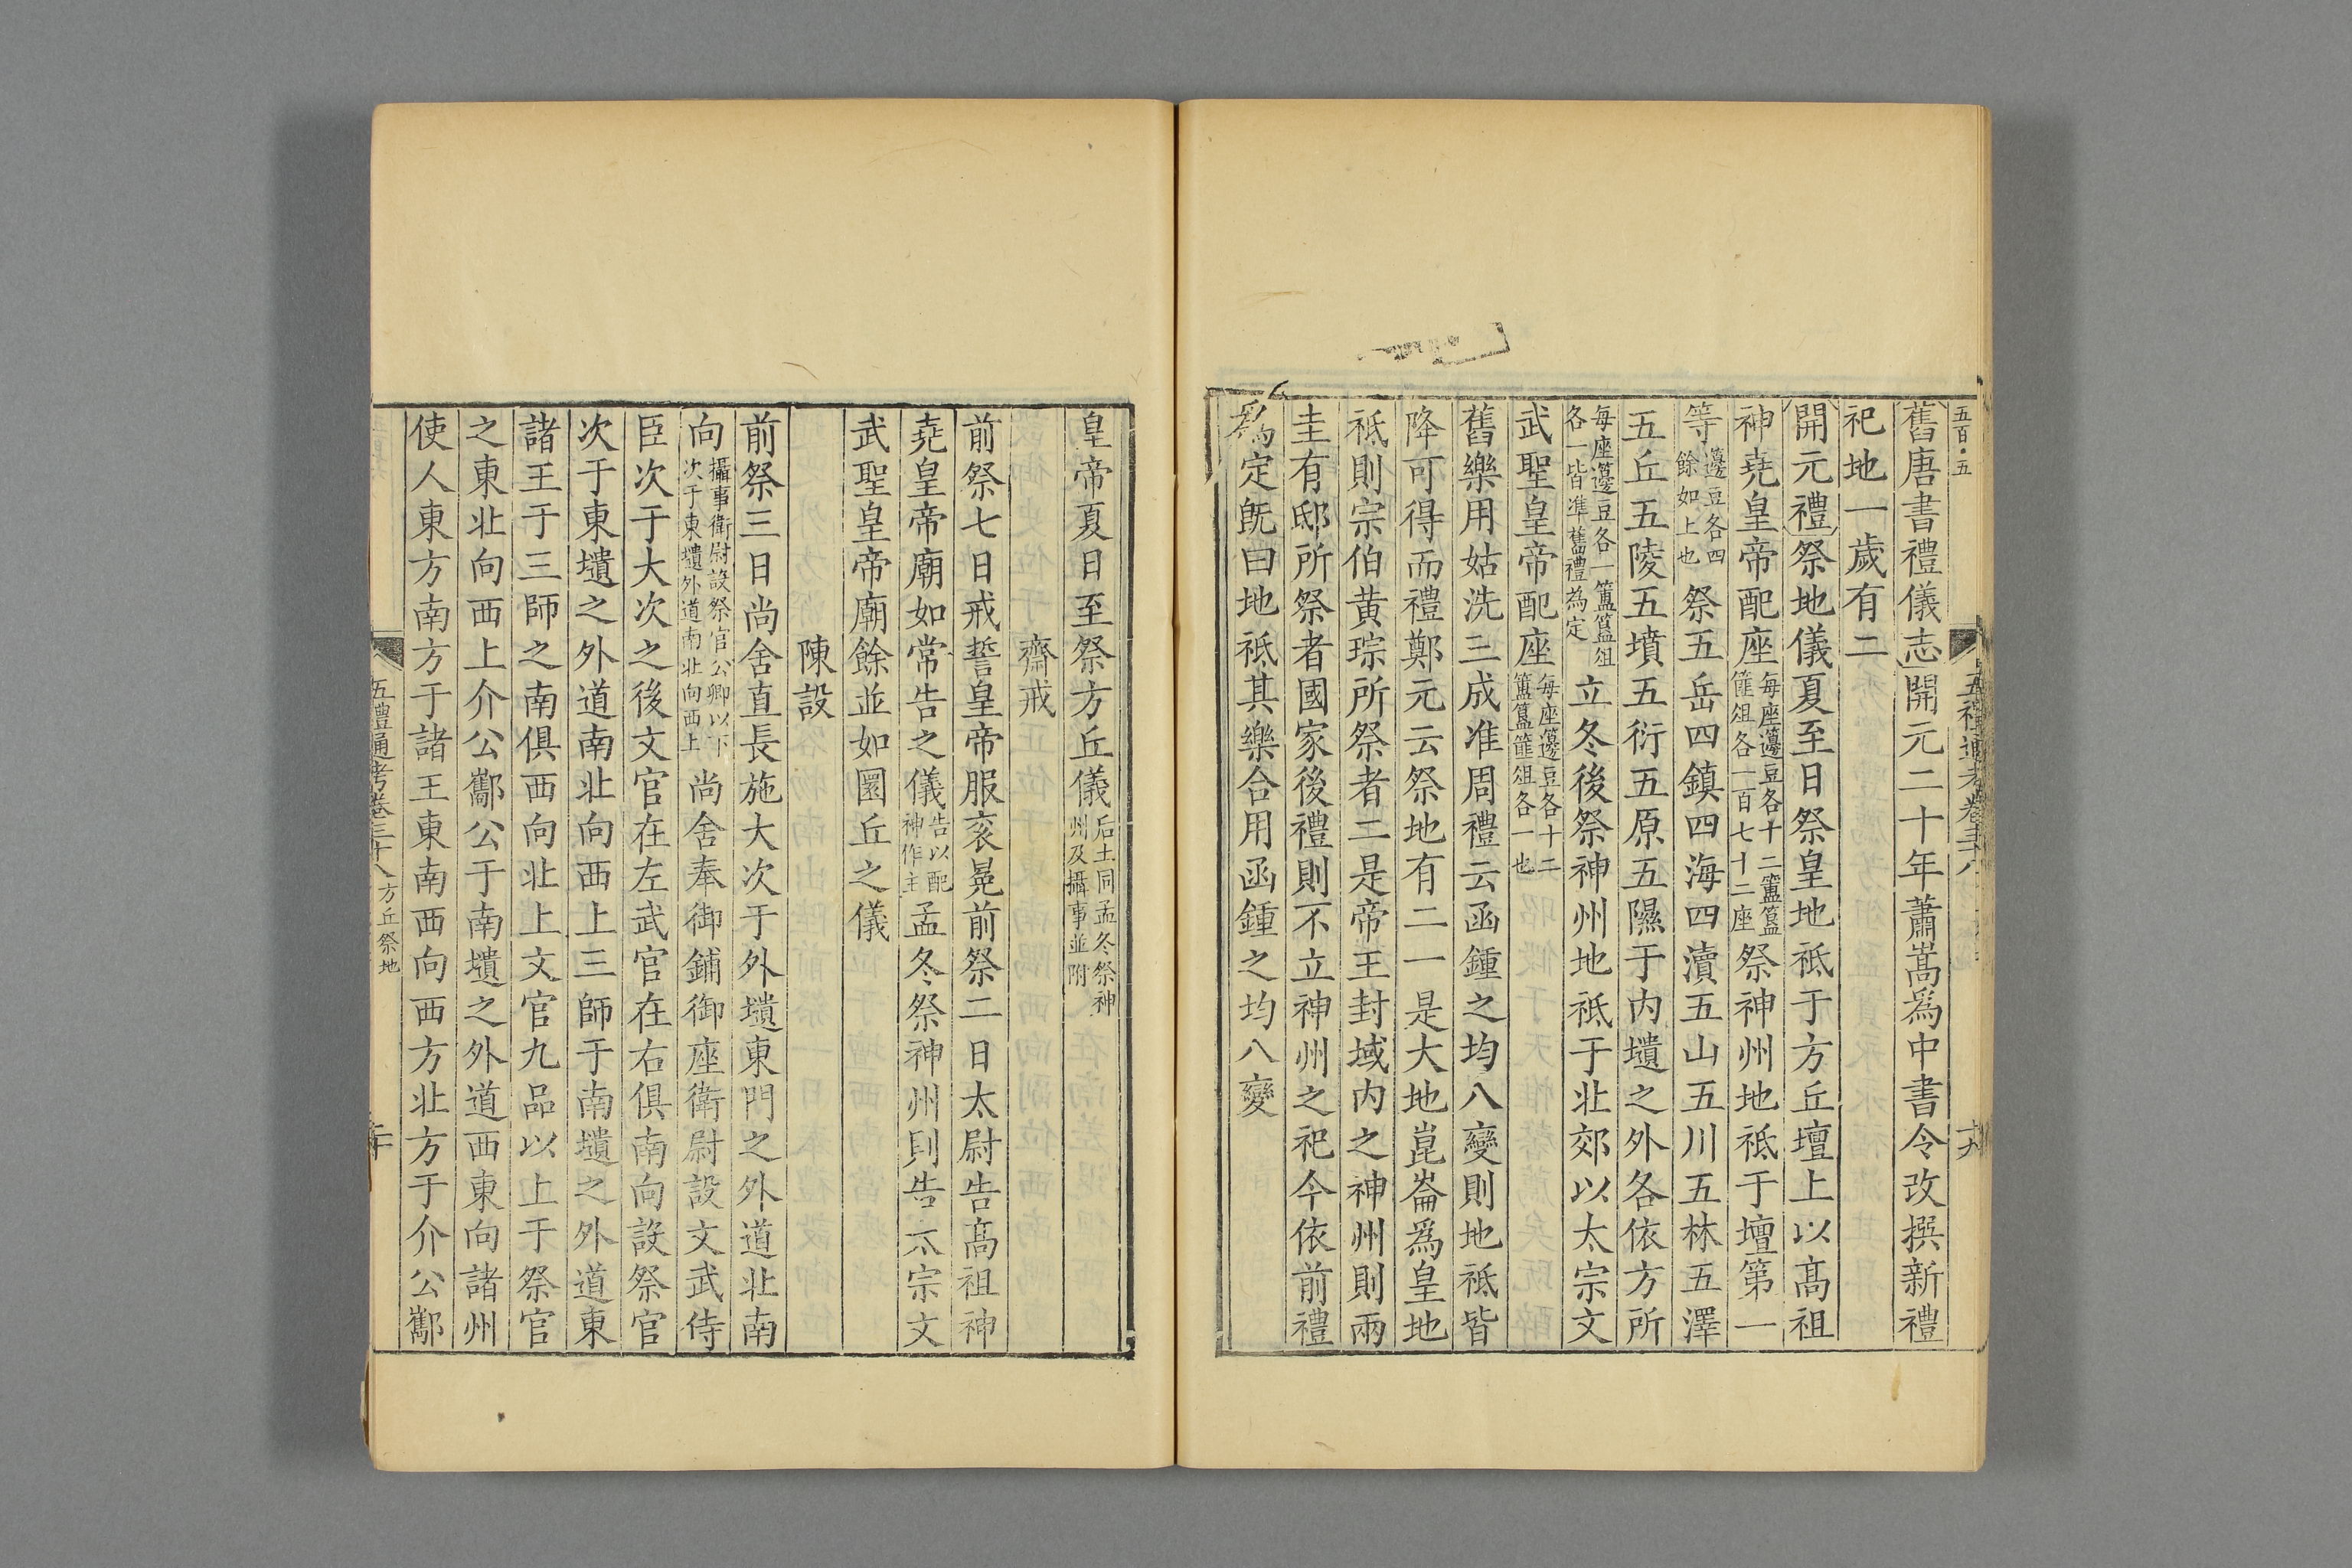 五百·五
五禮通考卷三十八
十九
舊唐書禮儀志開元二十年蕭嵩爲中書令改撰新禮
祀地一歲有二
開元禮祭地儀夏至日祭皇地祇于方丘壇上以髙祖
神堯皇帝配座每座籩豆各十二簠簋𠥶俎各一百七十二座祭神州地祇于壇第一
等籩豆各四餘如上也祭五岳四鎮四海四瀆五山五川五林五澤
五丘五陵五墳五衍五原五隰于内壝之外各依方所
每座籩豆各一簠簋俎各一皆准舊禮為定立冬後祭神州地祇于北郊以太宗文
武聖皇帝配座每座籩豆各十二簠簋𠥶俎各一也
舊樂用姑洗三成准周禮云函鍾之均八變則地祇皆
降可得而禮鄭元云祭地有二一是大地崑崙爲皇地
祇則宗伯黄琮所祭者二是帝王封域内之神州則兩
圭有邸所祭者國家後禮則不立神州之祀今依前禮
爲定旣曰地祇其樂合用函鍾之均八變
皇帝夏日至祭方丘儀后土同孟冬祭神州及攝事並附
齋戒
前祭七日戒誓皇帝服衮冕前祭二日太尉告髙祖神
堯皇帝廟如常告之儀告以配神作主孟冬祭神州則告太宗文
武聖皇帝廟餘並如圜丘之儀
陳設
前祭三日尚舍直長施大次于外壝東門之外道北南
向攝事衛尉設祭官公卿以下次于東壝外道南北向西上尚舍奉御鋪御座衛尉設文武侍
臣次于大次之後文官在左武官在右俱南向設祭官
次于東壝之外道南北向西上三師于南壝之外道東
諸王于三師之南俱西向北上文官九品以上于祭官
之東北向西上介公酅公于南壝之外道西東向諸州
使人東方南方于諸王東南西向西方北方于介公酅
五禮通考卷三十八方丘祭地
二十